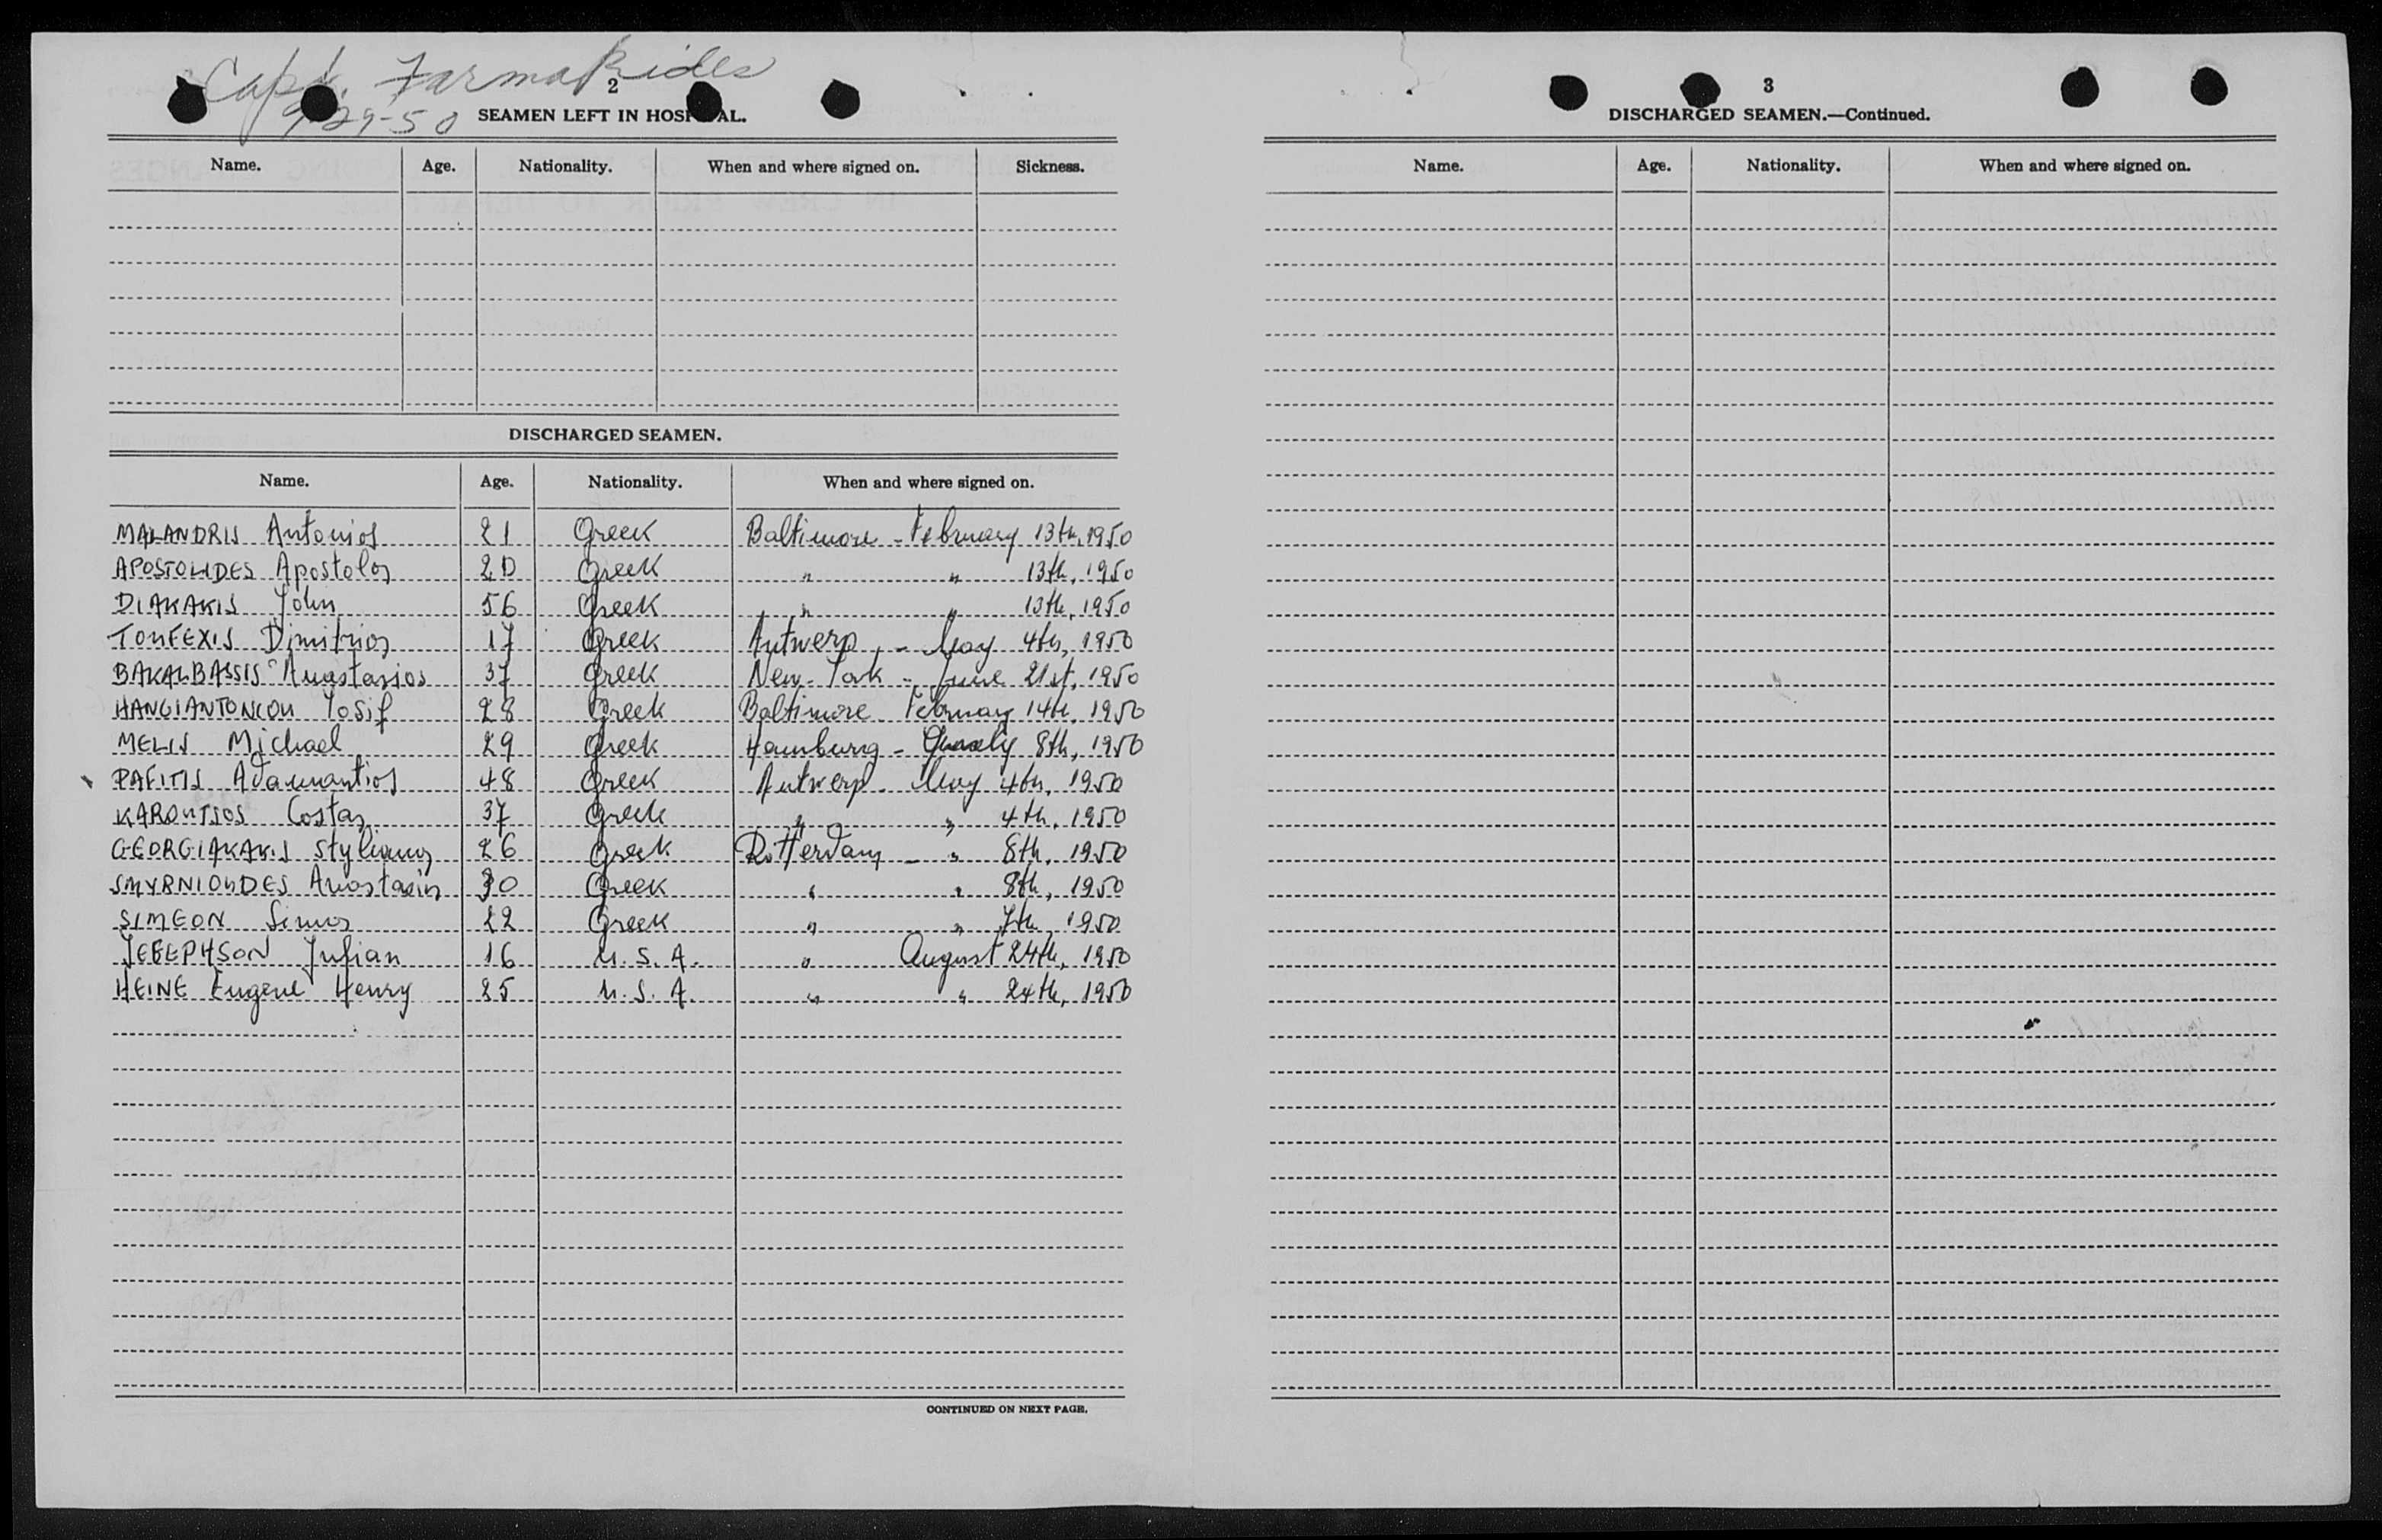 Capt. Farmakides
9-29-50
2
SEAMEN LEFT IN HOSPITAL.
Name. Age. Nationality. When and where signed on. Sickness.
DISCHARGED SEAMEN.
Name. Age. Nationality. When and where signed on.
MALANDRIS Antonios 21 Greek Baltimore - February 13th, 1950
APOSTOLIDES Apostolos 20 Greek " " 13th, 1950
DIAKAKIS John 56 Greek " " 13th, 1950
TOUFEXIS Dimitrios 17 Greek Antwerp - May 4th, 1950
BAKALBASSIS Anastasios 37 Greek New-York - June 21st, 1950
Yosif 28 Greek Baltimore February 14th, 1950
MELIS Michael 29 Greek Hamburg - 8th, 1950
PAFITIS Adamantios 48 Greek Antwerp - May 4th, 1950
KAROUTSOS Costas 37 Greek " " 4th, 1950
GEORGIAKAKIS Stylianos 26 Greek Rotterdam - " 8th, 1950
SMYRNIOUDES Anastasios 30 Greek " " 8th, 1950
SIMEON Simos 22 Greek " " 7th, 1950
Julian 16 U.S.A. " August 24th, 1950
HEINE Eugene Henry 25 U.S.A. " " 24th, 1950
CONTINUED ON NEXT PAGE.
3
DISCHARGED SEAMEN.—Continued.
Name. Age. Nationality. When and where signed on.